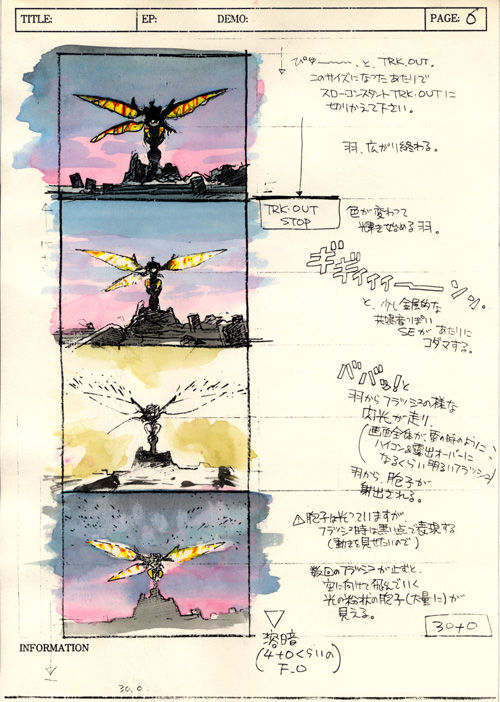 TITLE:
EP:
DEMO:
PAGE: 6
ぴゅ〜〜〜、と、TRK.OUT。
このサイズになったあたりで
スローコンスタントTRK.OUTに
切りかえて下さい。
羽、広がり終わる。
TRK.OUT
STOP
色が変わって
輝き始める羽。
ギギィィィーーンン。
と、少し金属的な
共鳴音っぽい
SEが あたりに
コダマする。
ババッ!と
羽からフラッシュの様な
閃光が走り、
(画面全体が雷の時のように、
ハイコン&露出オーバーに
なるくらい明るいフラッシュ)
羽から、胞子が
射出される。
△胞子は光っていますが
フラッシュ時は黒い点で表現する
(動きを見せたいので)
数回のフラッシュが止むと、
空に向けて飛んでいく
光の粉状の胞子(大量に)が
見える。
30+0
▽
溶暗
(4+0くらいの
F.O
INFORMATION
30.0